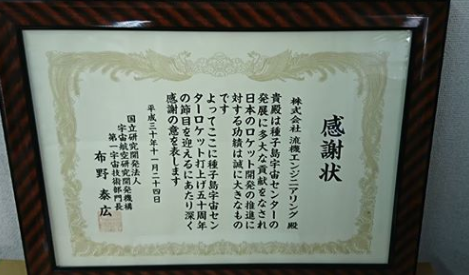 感謝状
株式会社 流機エンジニアリング 殿
貴殿は種子島宇宙センターの
発展に多大な貢献をなされ
日本のロケット開発の推進に
対する功績は誠に大きなもの
です
よってここに種子島宇宙セン
ターロケット打上げ五十周年
の節目を迎えるにあたり深く
感謝の意を表します
平成三十年十一月二十四日
国立研究開発法人
宇宙航空研究開発機構
第一宇宙技術部門長
布野 泰広